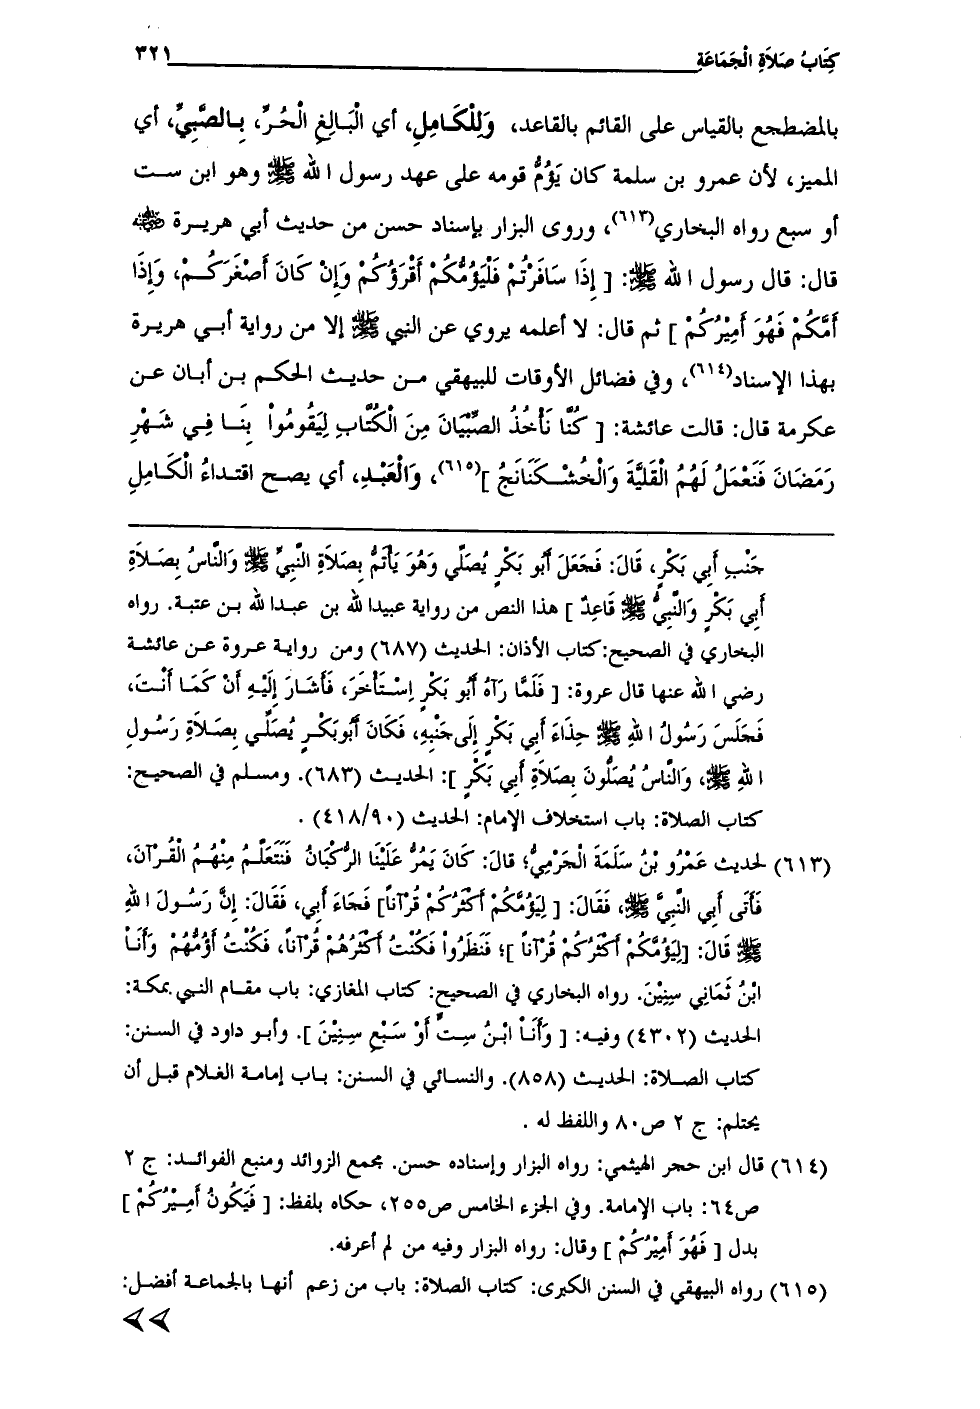 كِتَابُ صَلاَةِ الْجَمَاعَةِ ٣٢١
بالمضطجع بالقياس على القائم بالقاعد، وَلِلْكَامِلِ، أي الْبَالِغِ الْحُرِّ، بِالصَّبِيِّ، أي
المميز، لأن عمرو بن سلمة كان يَؤُمُّ قومه على عهد رسول الله ﷺ وهو ابن ست
أو سبع رواه البخاري(٦١٣)، وروى البزار بإسناد حسن من حديث أبي هريرة ﷺ
قال: قال رسول الله ﷺ: [ إِذَا سَافَرْتُمْ فَلْيَؤُمَّكُمْ أَقْرَؤُكُمْ وَإِنْ كَانَ أَصْغَرَكُمْ، وَإِذَا
أَمَّكُمْ فَهُوَ أَمِيْرُكُمْ ] ثم قال: لا أعلمه يروي عن النبي ﷺ إلا من رواية أبي هريرة
بهذا الإسناد(٦١٤)، وفي فضائل الأوقات للبيهقي من حديث الحكم بن أبان عن
عكرمة قال: قالت عائشة: [ كُنَّا نَأْخُذُ الصِّبْيَانَ مِنَ الْكُتَّابِ لِيَقُومُواْ بِنَا فِي شَهْرِ
رَمَضَانَ فَنَعْمَلُ لَهُمُ الْقَلِيَّةَ وَالْخُشْكَنَانَجُ ](٦١٥)، وَالْعَبْدِ، أي يصح اقتداءُ الْكَامِلِ
جَنْبِ أَبِي بَكْرٍ، قَالَ: فَجَعَلَ أَبُو بَكْرٍ يُصَلِّي وَهُوَ يَأْتَمُّ بِصَلاَةِ النَّبِيِّ ﷺ وَالنَّاسُ بِصَلاَةِ
أَبِي بَكْرٍ وَالنَّبِيُّ ﷺ قَاعِدٌ ] هذا النص من رواية عبيدالله بن عبدالله بن عتبة. رواه
البخاري في الصحيح:كتاب الأذان: الحديث (٦٨٧) ومن رواية عروة عن عائشة
رضي الله عنها قال عروة: [ فَلَمَّا رَآهُ أَبُو بَكْرٍ اِسْتَأْخَرَ، فَأَشَارَ إِلَيْهِ أَنْ كَمَا أَنْتَ،
فَجَلَسَ رَسُولُ اللهِ ﷺ حِذَاءَ أَبِي بَكْرٍ إِلَى جَنْبِهِ، فَكَانَ أَبُوبَكْرٍ يُصَلِّي بِصَلاَةِ رَسُولِ
اللهِ ﷺ، وَالنَّاسُ يُصَلُّونَ بِصَلاَةِ أَبِي بَكْرٍ ]: الحديث (٦٨٣). ومسلم في الصحيح:
كتاب الصلاة: باب استخلاف الإمام: الحديث (٤١٨/٩٠) .
(٦١٣) لحديث عَمْرُو بْنُ سَلَمَةَ الْجَرْمِيُّ؛ قالَ: كَانَ يَمُرُّ عَلَيْنَا الرُّكْبَانُ فَنَتَعَلَّمُ مِنْهُمُ الْقُرْآنَ،
فَأَتَى أَبِي النَّبِيَّ ﷺ، فَقَالَ: [ لِيَؤُمَّكُمْ أَكْثَرُكُمْ قُرْآناً] فَجَاءَ أَبِي، فَقَالَ: إِنَّ رَسُولَ اللهِ
ﷺ قَالَ: [لِيَؤُمَّكُمْ أَكْثَرُكُمْ قُرْآناً ]؛ فَنَظَرُواْ فَكُنْتُ أَكْثَرُهُمْ قُرْآناً، فَكُنْتُ أَؤُمُّهُمْ وَأَنَاْ
ابْنُ ثَمَانِي سِنِيْنَ. رواه البخاري في الصحيح: كتاب المغازي: باب مقام النبي بمكة:
الحديث (٤٣٠٢) وفيه: [ وَأَنَاْ ابْنُ سِتٍّ أَوْ سَبْعِ سِنِيْنَ ]. وأبو داود في السنن:
كتاب الصلاة: الحديث (٨٥٨). والنسائي في السنن: باب إمامة الغلام قبل أن
يحتلم: ج ٢ ص٨٠ واللفظ له .
(٦١٤) قال ابن حجر الهيثمي: رواه البزار وإسناده حسن. مجمع الزوائد ومنبع الفوائد: ج ٢
ص٦٤: باب الإمامة. وفي الجزء الخامس ص٢٥٥، حكاه بلفظ: [ فَيَكُونُ أَمِيْرُكُمْ ]
بدل [ فَهُوَ أَمِيْرُكُمْ ] وقال: رواه البزار وفيه من لم أعرفه.
(٦١٥) رواه البيهقي في السنن الكبرى: كتاب الصلاة: باب من زعم أنها بالجماعة أفضل: